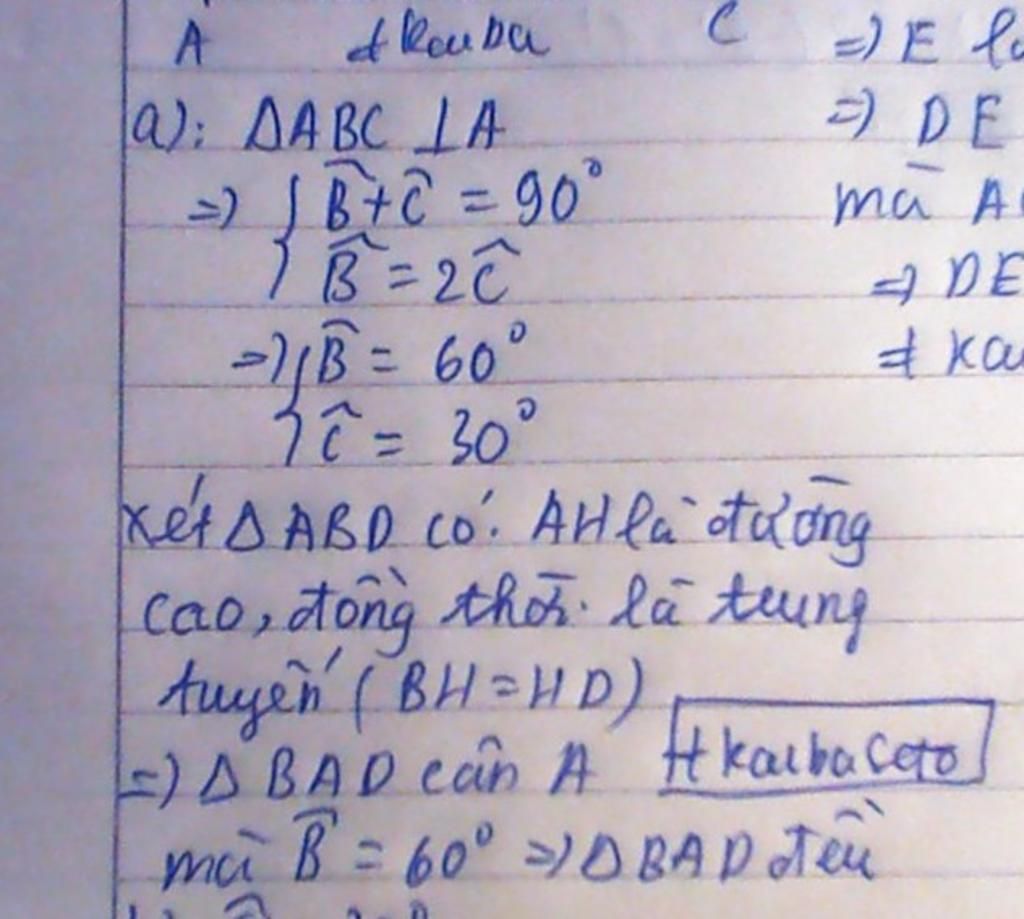 A #kauba C
a): ΔABC ⊥A
=) { B̂+Ĉ = 90°
B̂ = 2Ĉ
=) { B̂ = 60°
Ĉ = 30°
xét Δ ABD có: AH là đường
cao, đồng thời là trung
tuyến (BH=HD)
=) Δ BAD cân A
#kaibaCeto
mà B̂ = 60° =) Δ BAD đều
=) E
=) DE
mà A
=) DE